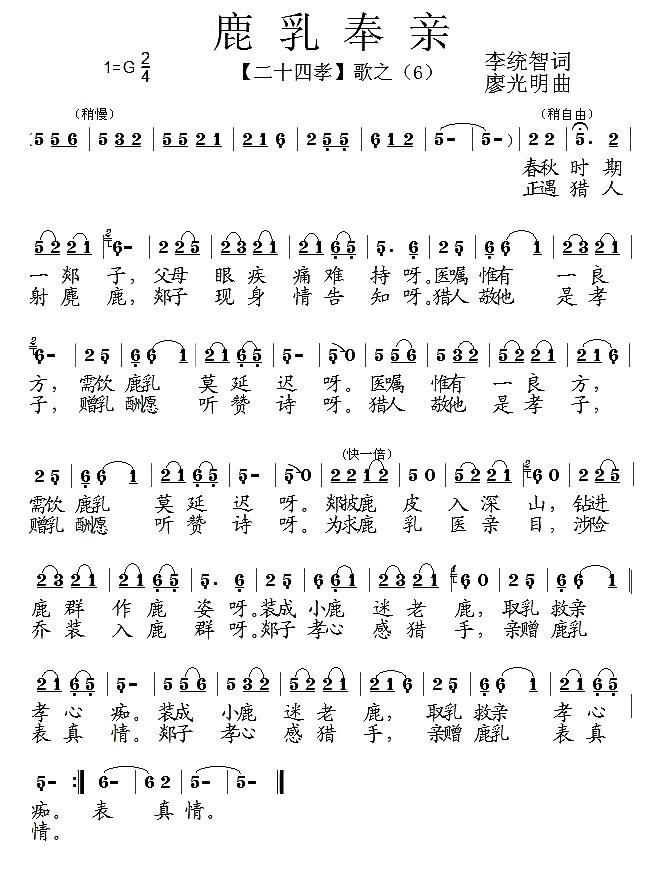 鹿乳奉亲
1=G 2/4
【二十四孝】歌之（6）
李统智词
廖光明曲
（稍慢）
（稍自由）
(5 5 6 | 5 3 2 | 5 5 2 1 | 2 1 6 | 2 5 5 | 6 1 2 | 5 - | 5 - ) | 2 2 | 5. 2 |
春秋 时 期
正遇 猎 人
5 2 2 1 | 6 - | 2 2 5 | 2 3 2 1 | 2 1 6 5 | 5. 6 | 2 5 | 6 6 1 | 2 3 2 1 |
一 郯 子，父母 眼 疾 痛 难 持 呀。医嘱 惟有 一 良
射 麀 鹿，郯子 现 身 情 告 知 呀。猎人 敬他 是 孝
6 - | 2 5 | 6 6 1 | 2 1 6 5 | 5 - | 5 0 | 5 5 6 | 5 3 2 | 5 2 2 1 | 2 1 6 |
方，需饮 鹿乳 莫 延 迟 呀。医嘱 惟有 一 良 方，
子，赠乳 酬愿 听 赞 诗 呀。猎人 敬他 是 孝 子，
（快一倍）
2 5 | 6 6 1 | 2 1 6 5 | 5 - | 5 0 | 2 2 1 2 | 5 0 | 5 2 2 1 | 6 0 | 2 5 |
需饮 鹿乳 莫 延 迟 呀。郯披鹿 皮 入 深 山，钻进
赠乳 酬愿 听 赞 诗 呀。为求鹿 乳 医 亲 目，涉险
2 3 2 1 | 2 1 6 5 | 5. 6 | 2 5 | 2 3 2 1 | 2 2 1 | 6 0 | 2 5 | 6 6 1 ‖
鹿 群 作 鹿 姿 呀。装成 小鹿 迷 老 鹿，取乳 救亲
乔 装 入 鹿 群 呀。郯子 孝心 感 猎 手，亲赠 鹿乳
2 1 6 5 | 5 - | 2 2 5 | 5 3 2 | 1 2 2 1 | 2 1 6 | 2 5 | 5 6 1 | 2 1 6 5 |
孝 心 痴。装成 小鹿 迷 老 鹿，取乳 救亲 孝 心
表 真 情。郯子 孝心 感 猎 手，亲赠 鹿乳 表 真
5 - :‖ 6 - | 6 2 | 5 - | 5 - ‖
痴。表 真 情。
情。